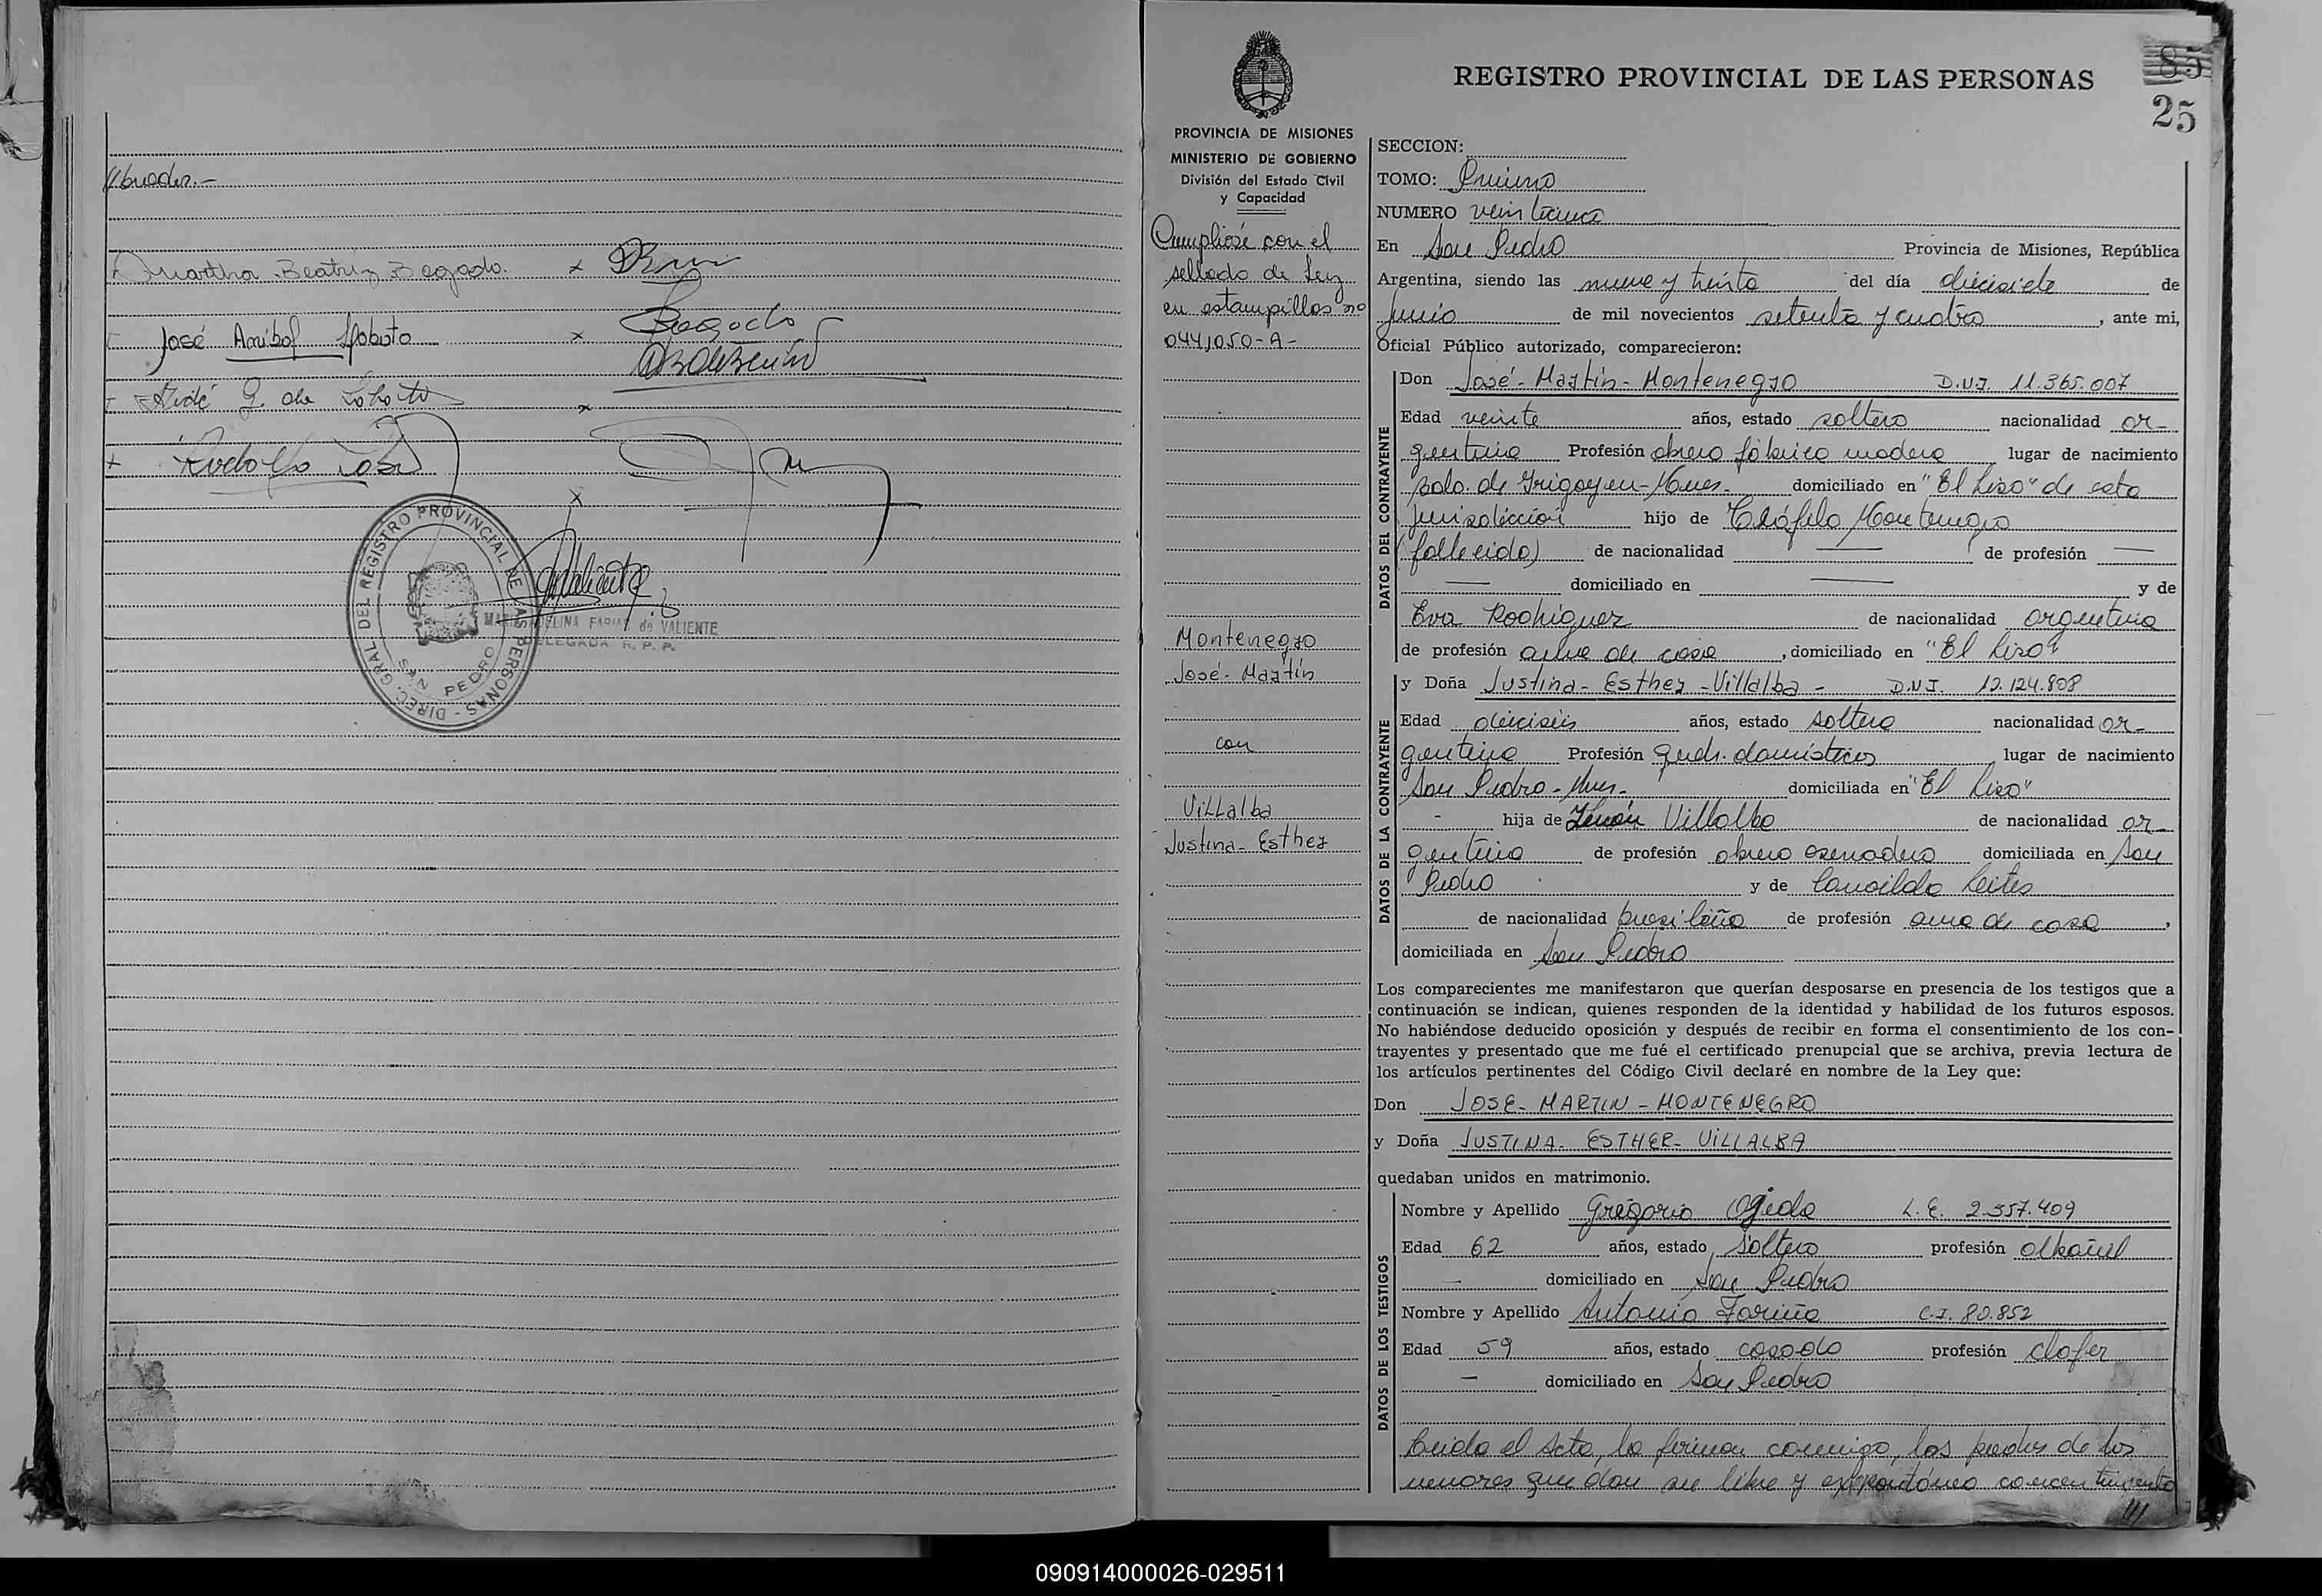 Martha Beatriz Bogado.
José Anibal Loboto
Aidé G. de
Rodolfo
DIREC. GRAL DEL REGISTRO PROVINCIAL DE LAS PERSONAS -
SAN PEDRO
FARIAS de VALIENTE
DELEGADA R. P. P.
85
25
REGISTRO PROVINCIAL DE LAS PERSONAS
PROVINCIA DE MISIONES
MINISTERIO DE GOBIERNO
División del Estado Civil
y Capacidad
Cumpliose con el
sellado de Ley
en estampillas nº
044,050-A-
Montenegro
José- Martín
con
Villalba
Justina- Esther
SECCION:
TOMO: Primero
NUMERO veinticinco
En San Pedro Provincia de Misiones, República
Argentina, siendo las nueve y treinta del día diecisiete de
Junio de mil novecientos setenta y cuatro, ante mi,
Oficial Público autorizado, comparecieron:
DATOS DEL CONTRAYENTE
Don José- Martín- Montenegro D.N.I. 11.365.007
Edad veinte años, estado soltero nacionalidad ar-
gentina Profesión obrero fábrica madera lugar de nacimiento
Bdo. de Irigoyen-Mnes- domiciliado en "El Liso" de esta
jurisdicción hijo de Teófilo Montenegro
(fallecido) de nacionalidad — de profesión —
— domiciliado en — y de
Eva Rodriguez de nacionalidad argentina
de profesión ama de casa, domiciliado en "El Liso"
DATOS DE LA CONTRAYENTE
y Doña Justina- Esther -Villalba- D.N.I. 12.124.808
Edad dieciseis años, estado soltera nacionalidad ar-
gentina Profesión queh. domésticos lugar de nacimiento
San Pedro-Mnes- domiciliada en "El Liso"
- hija de Zenón Villalba de nacionalidad ar-
gentina de profesión obrero aserradero domiciliada en San
Pedro y de Casilda Leites
de nacionalidad brasileña de profesión ama de casa,
domiciliada en San Pedro
Los comparecientes me manifestaron que querían desposarse en presencia de los testigos que a
continuación se indican, quienes responden de la identidad y habilidad de los futuros esposos.
No habiéndose deducido oposición y después de recibir en forma el consentimiento de los con-
trayentes y presentado que me fué el certificado prenupcial que se archiva, previa lectura de
los artículos pertinentes del Código Civil declaré en nombre de la Ley que:
Don JOSE- MARTIN - MONTENEGRO
y Doña JUSTINA- ESTHER- VILLALBA
quedaban unidos en matrimonio.
DATOS DE LOS TESTIGOS
Nombre y Apellido Gregorio Ojeda L.E. 2.557.409
Edad 62 años, estado soltero profesión albañil
— domiciliado en San Pedro
Nombre y Apellido Antonio Fariña C.I. 80.852
Edad 59 años, estado casado profesión chofer
— domiciliado en San Pedro
Leida el Acta, la firman conmigo, los padres de los
menores que dan su libre y expontáneo consentimiento
///
090914000026-029511